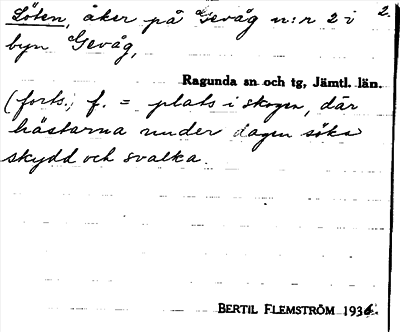 2.
Löten, åker på Gevåg n:r 2 i
byn Gevåg,
Ragunda sn och tg, Jämtl. län.
(forts.; f. = plats i skogen, där
hästarna under dagen söka
skydd och svalka.
BERTIL FLEMSTRÖM 1936.